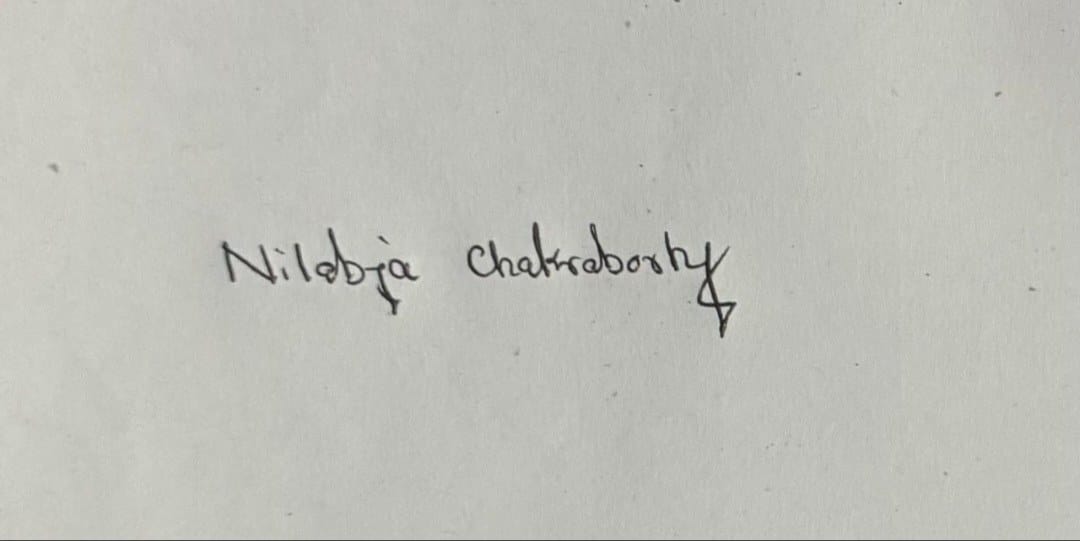 Nilabja Chakraborty